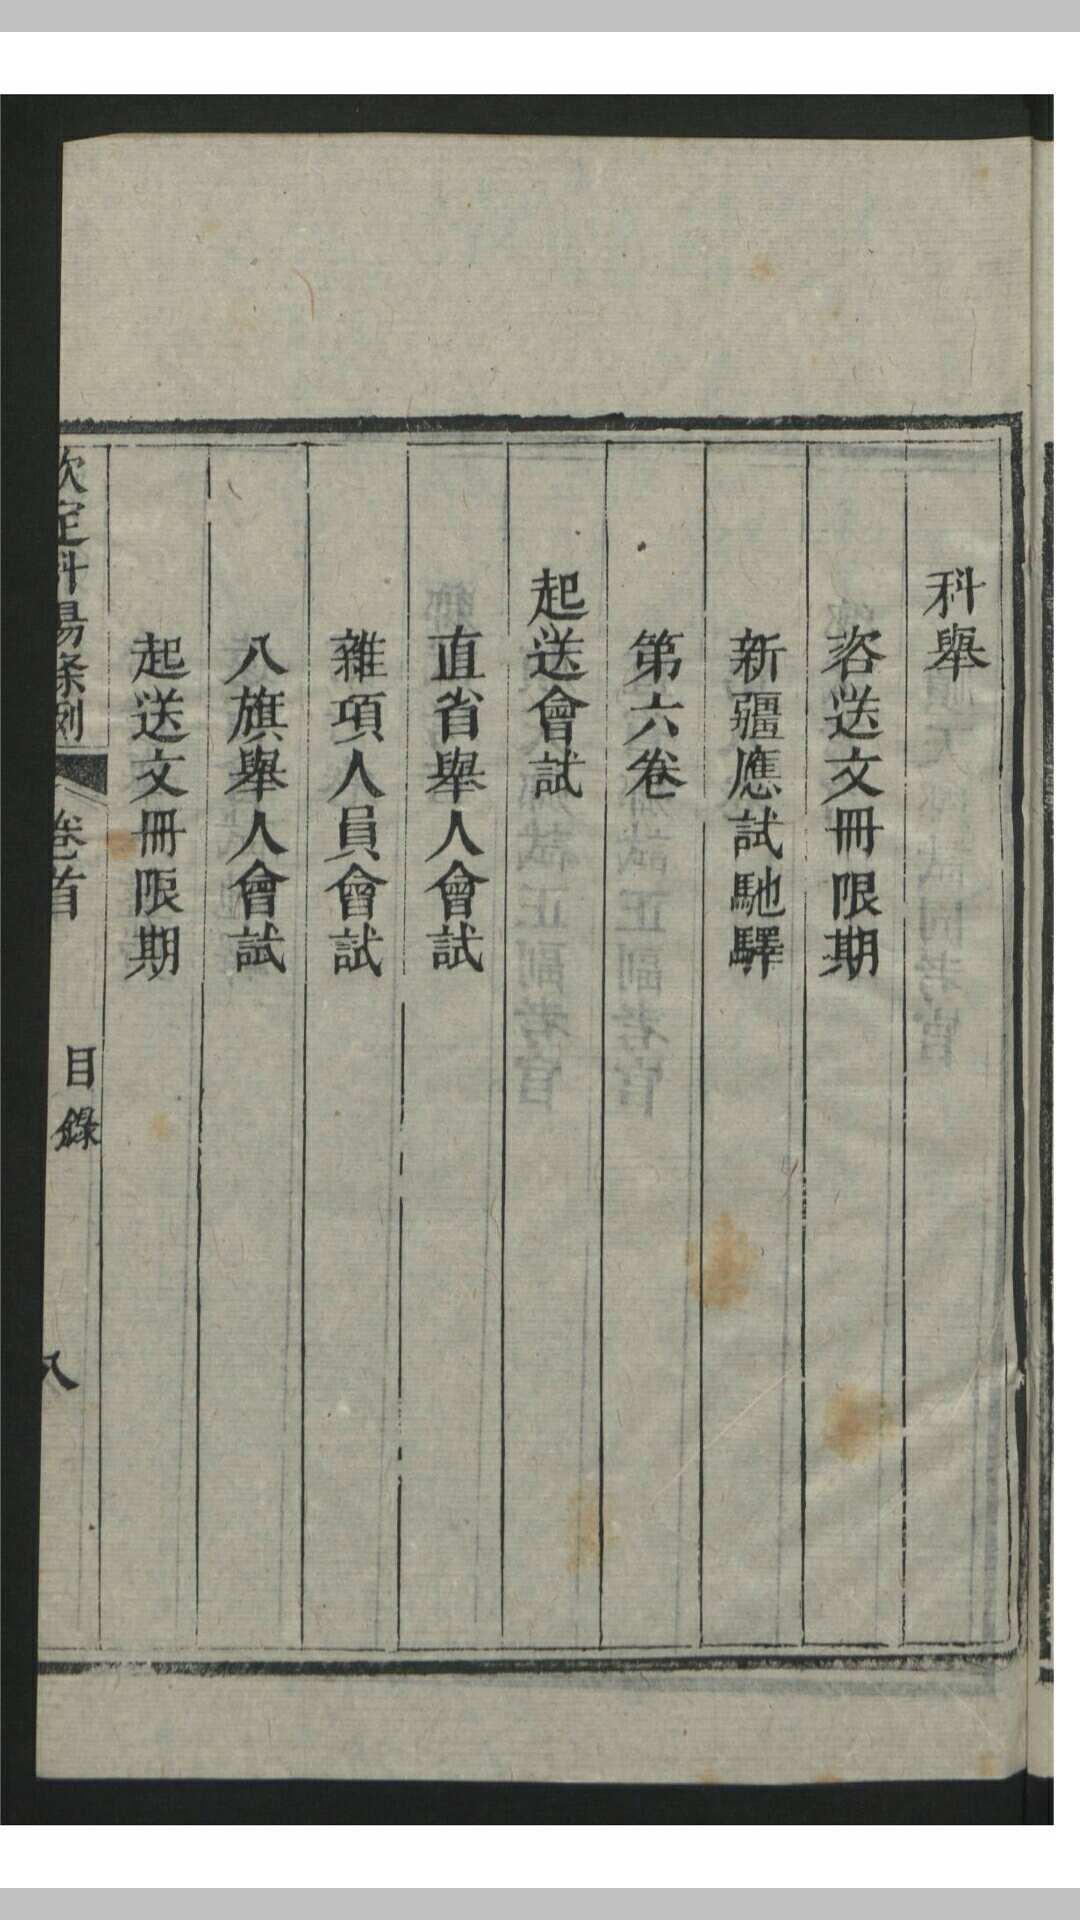 科舉
咨送文冊限期
新疆應試馳驛
第六卷
起送會試
直省舉人會試
雜項人員會試
八旗舉人會試
起送文冊限期
欽定科場條例
卷首
目錄
八